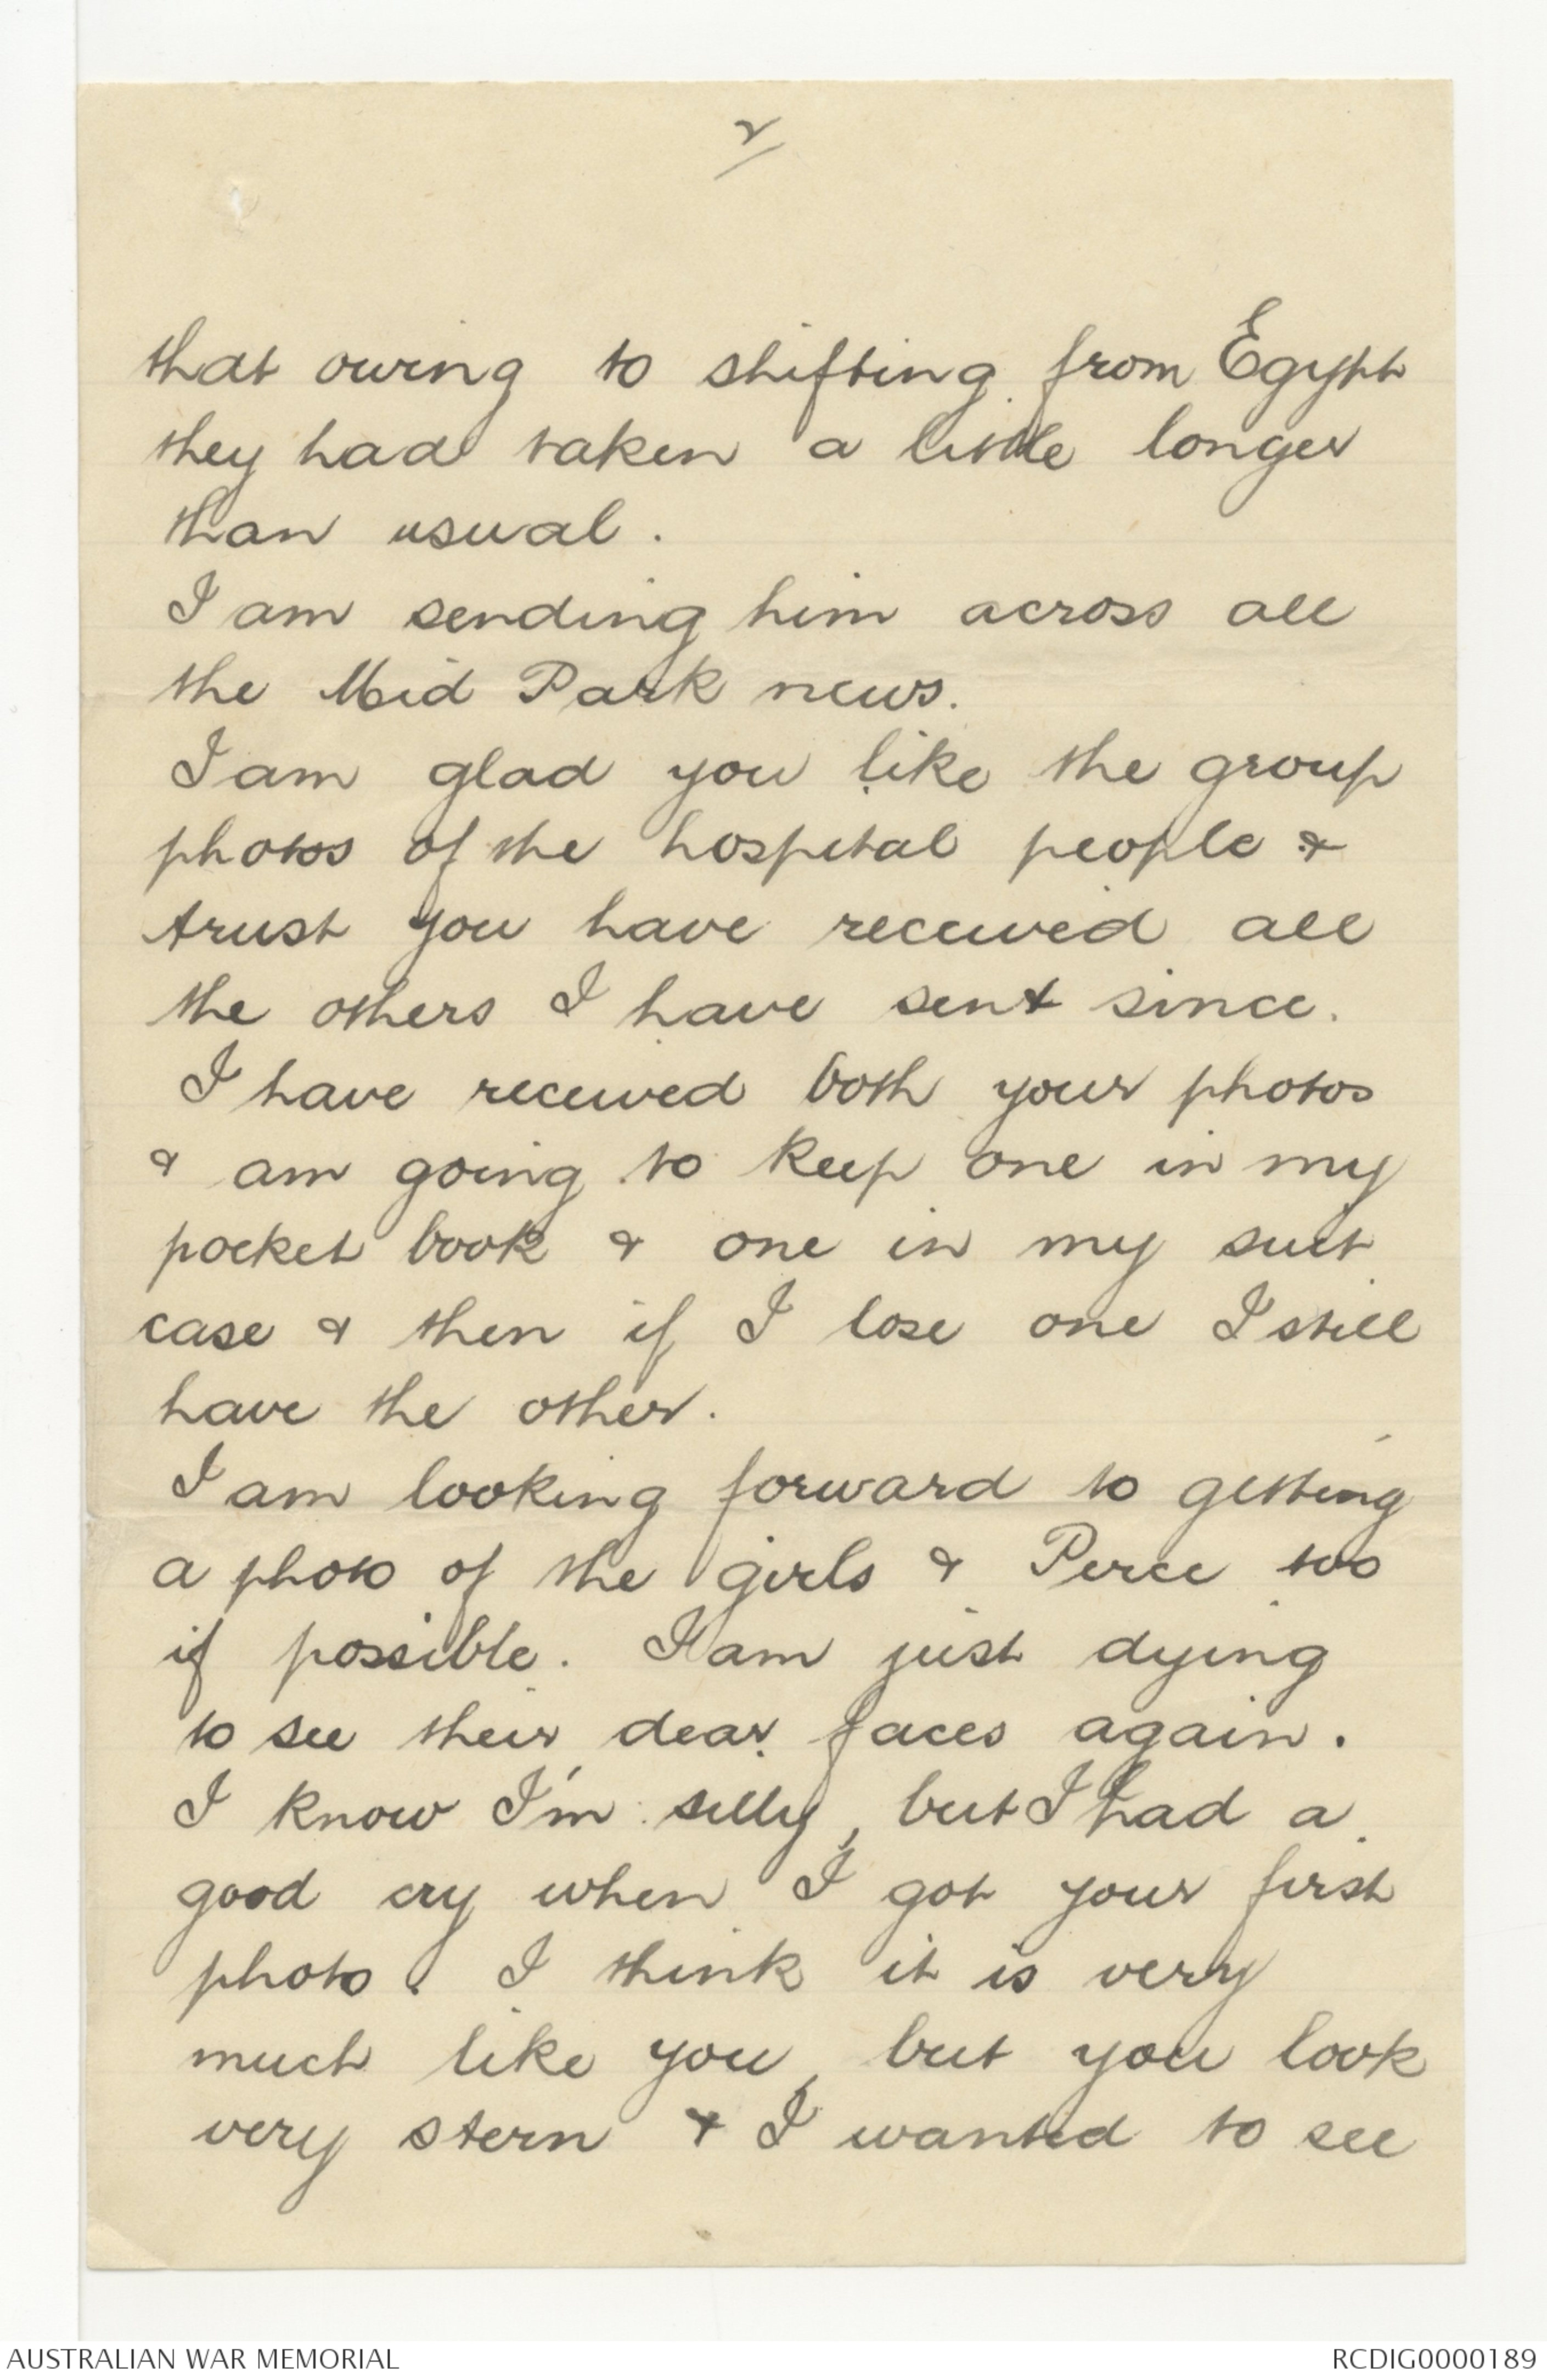 2/
that owing to shifting from Egypt
they had taken a little longer
than usual.
I am sending him across all
the Mid Park news.
I am glad you like the group
photos of the hospital people &
trust you have received all
the others I have sent since.
I have received both your photos
& am going to keep one in my
pocket book & one in my suit
case & then if I lose one I still
have the other.
I am looking forward to getting
a photo of the girls & Perce too
if possible. I am just dying
to see their dear faces again.
I know I'm silly, but I had a
good cry when I got your first
photo. I think it is very
much like you, but you look
very stern & I wanted to see
AUSTRALIAN WAR MEMORIAL
RCDIG0000189